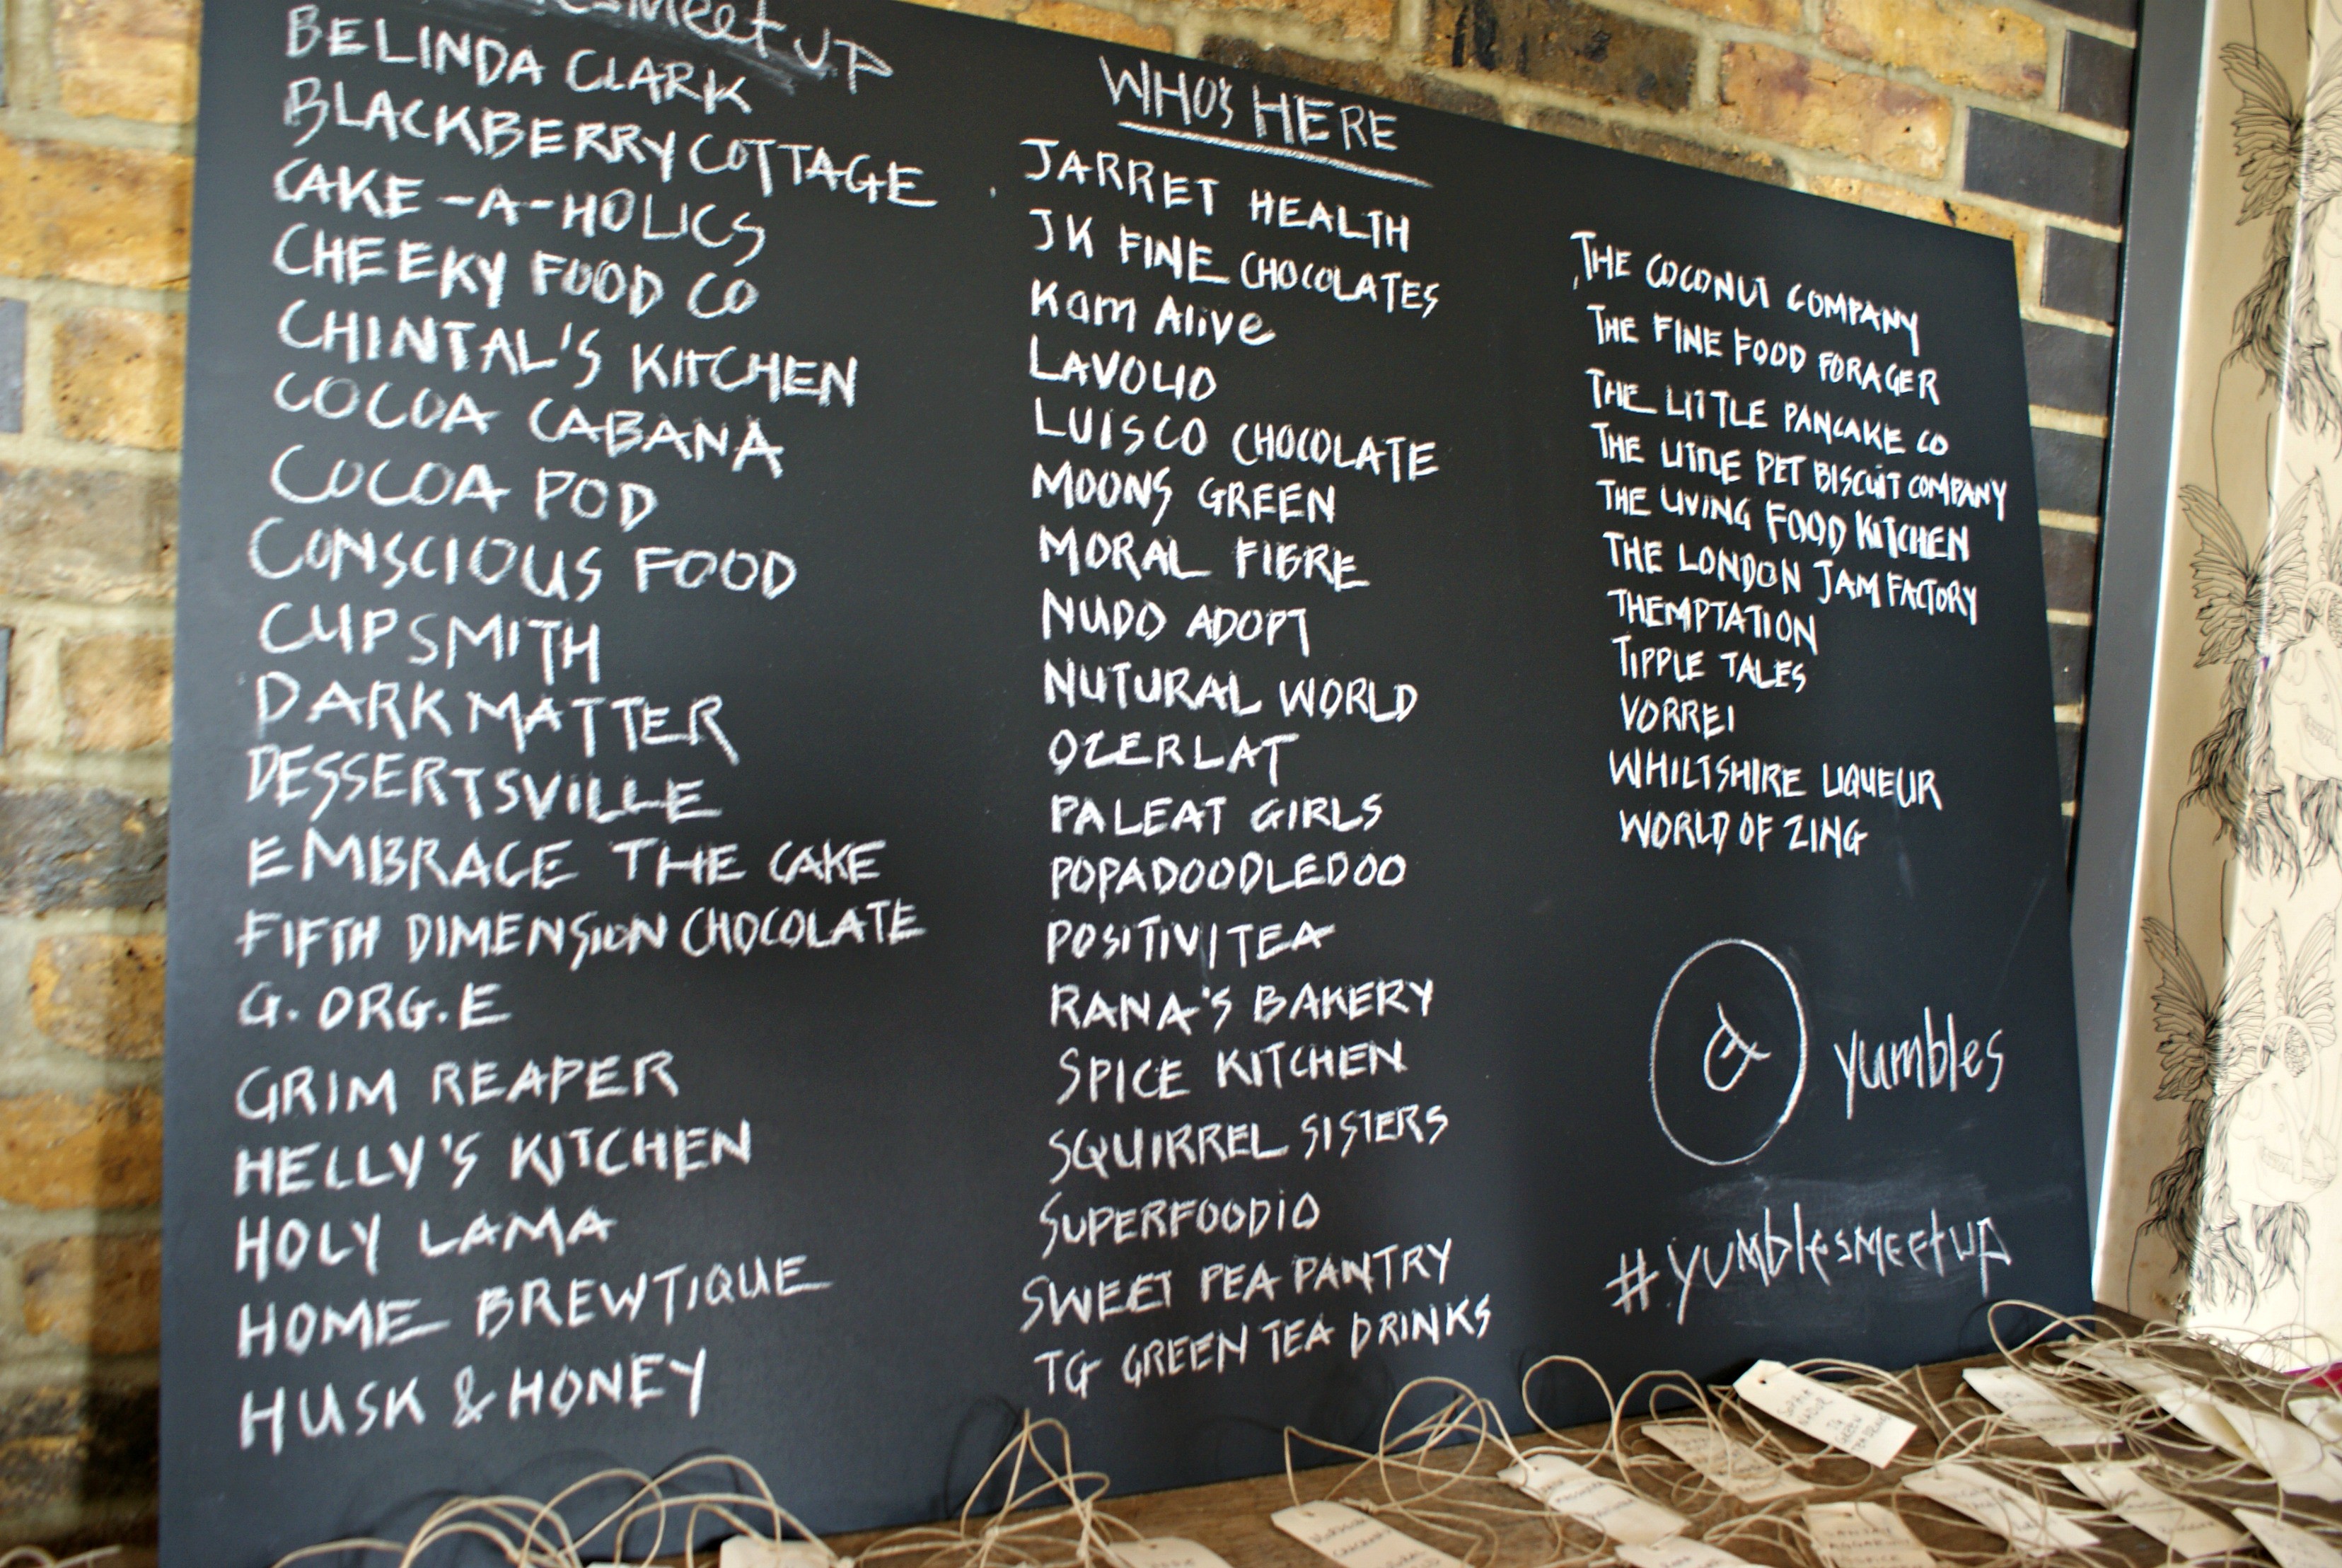 Meet UP
BELINDA CLARK
BLACKBERRY COTTAGE
CAKE-A-HOLICS
CHEEKY FOOD CO
CHINTAL'S KITCHEN
COCOA CABANA
COCOA POD
CONSCIOUS FOOD
CUPSMITH
DARK MATTER
DESSERTSVILLE
EMBRACE THE CAKE
FIFTH DIMENSION CHOCOLATE
G.ORG.E
GRIM REAPER
HELLY'S KITCHEN
HOLY LAMA
HOME BREWTIQUE
HUSK & HONEY
WHO'S HERE
JARRET HEALTH
JK FINE CHOCOLATES
Kam Alive
LAVOLIO
LUISCO CHOCOLATE
MOONS GREEN
MORAL FIBRE
NUDO ADOPT
NUTURAL WORLD
OZERLAT
PALEAT GIRLS
POPADOODLEDOO
POSITIVITEA
RANA'S BAKERY
SPICE KITCHEN
SQUIRREL SISTERS
SUPERFOODIO
SWEET PEA PANTRY
TG GREEN TEA DRINKS
THE COCONUT COMPANY
THE FINE FOOD FORAGER
THE LITTLE PANCAKE CO
THE LITTLE PET BISCUIT COMPANY
THE LIVING FOOD KITCHEN
THE LONDON JAM FACTORY
THEMPTATION
TIPPLE TALES
VORREI
WHILTSHIRE LIQUEUR
WORLD OF ZING
yumbles
#yumblesmeetup